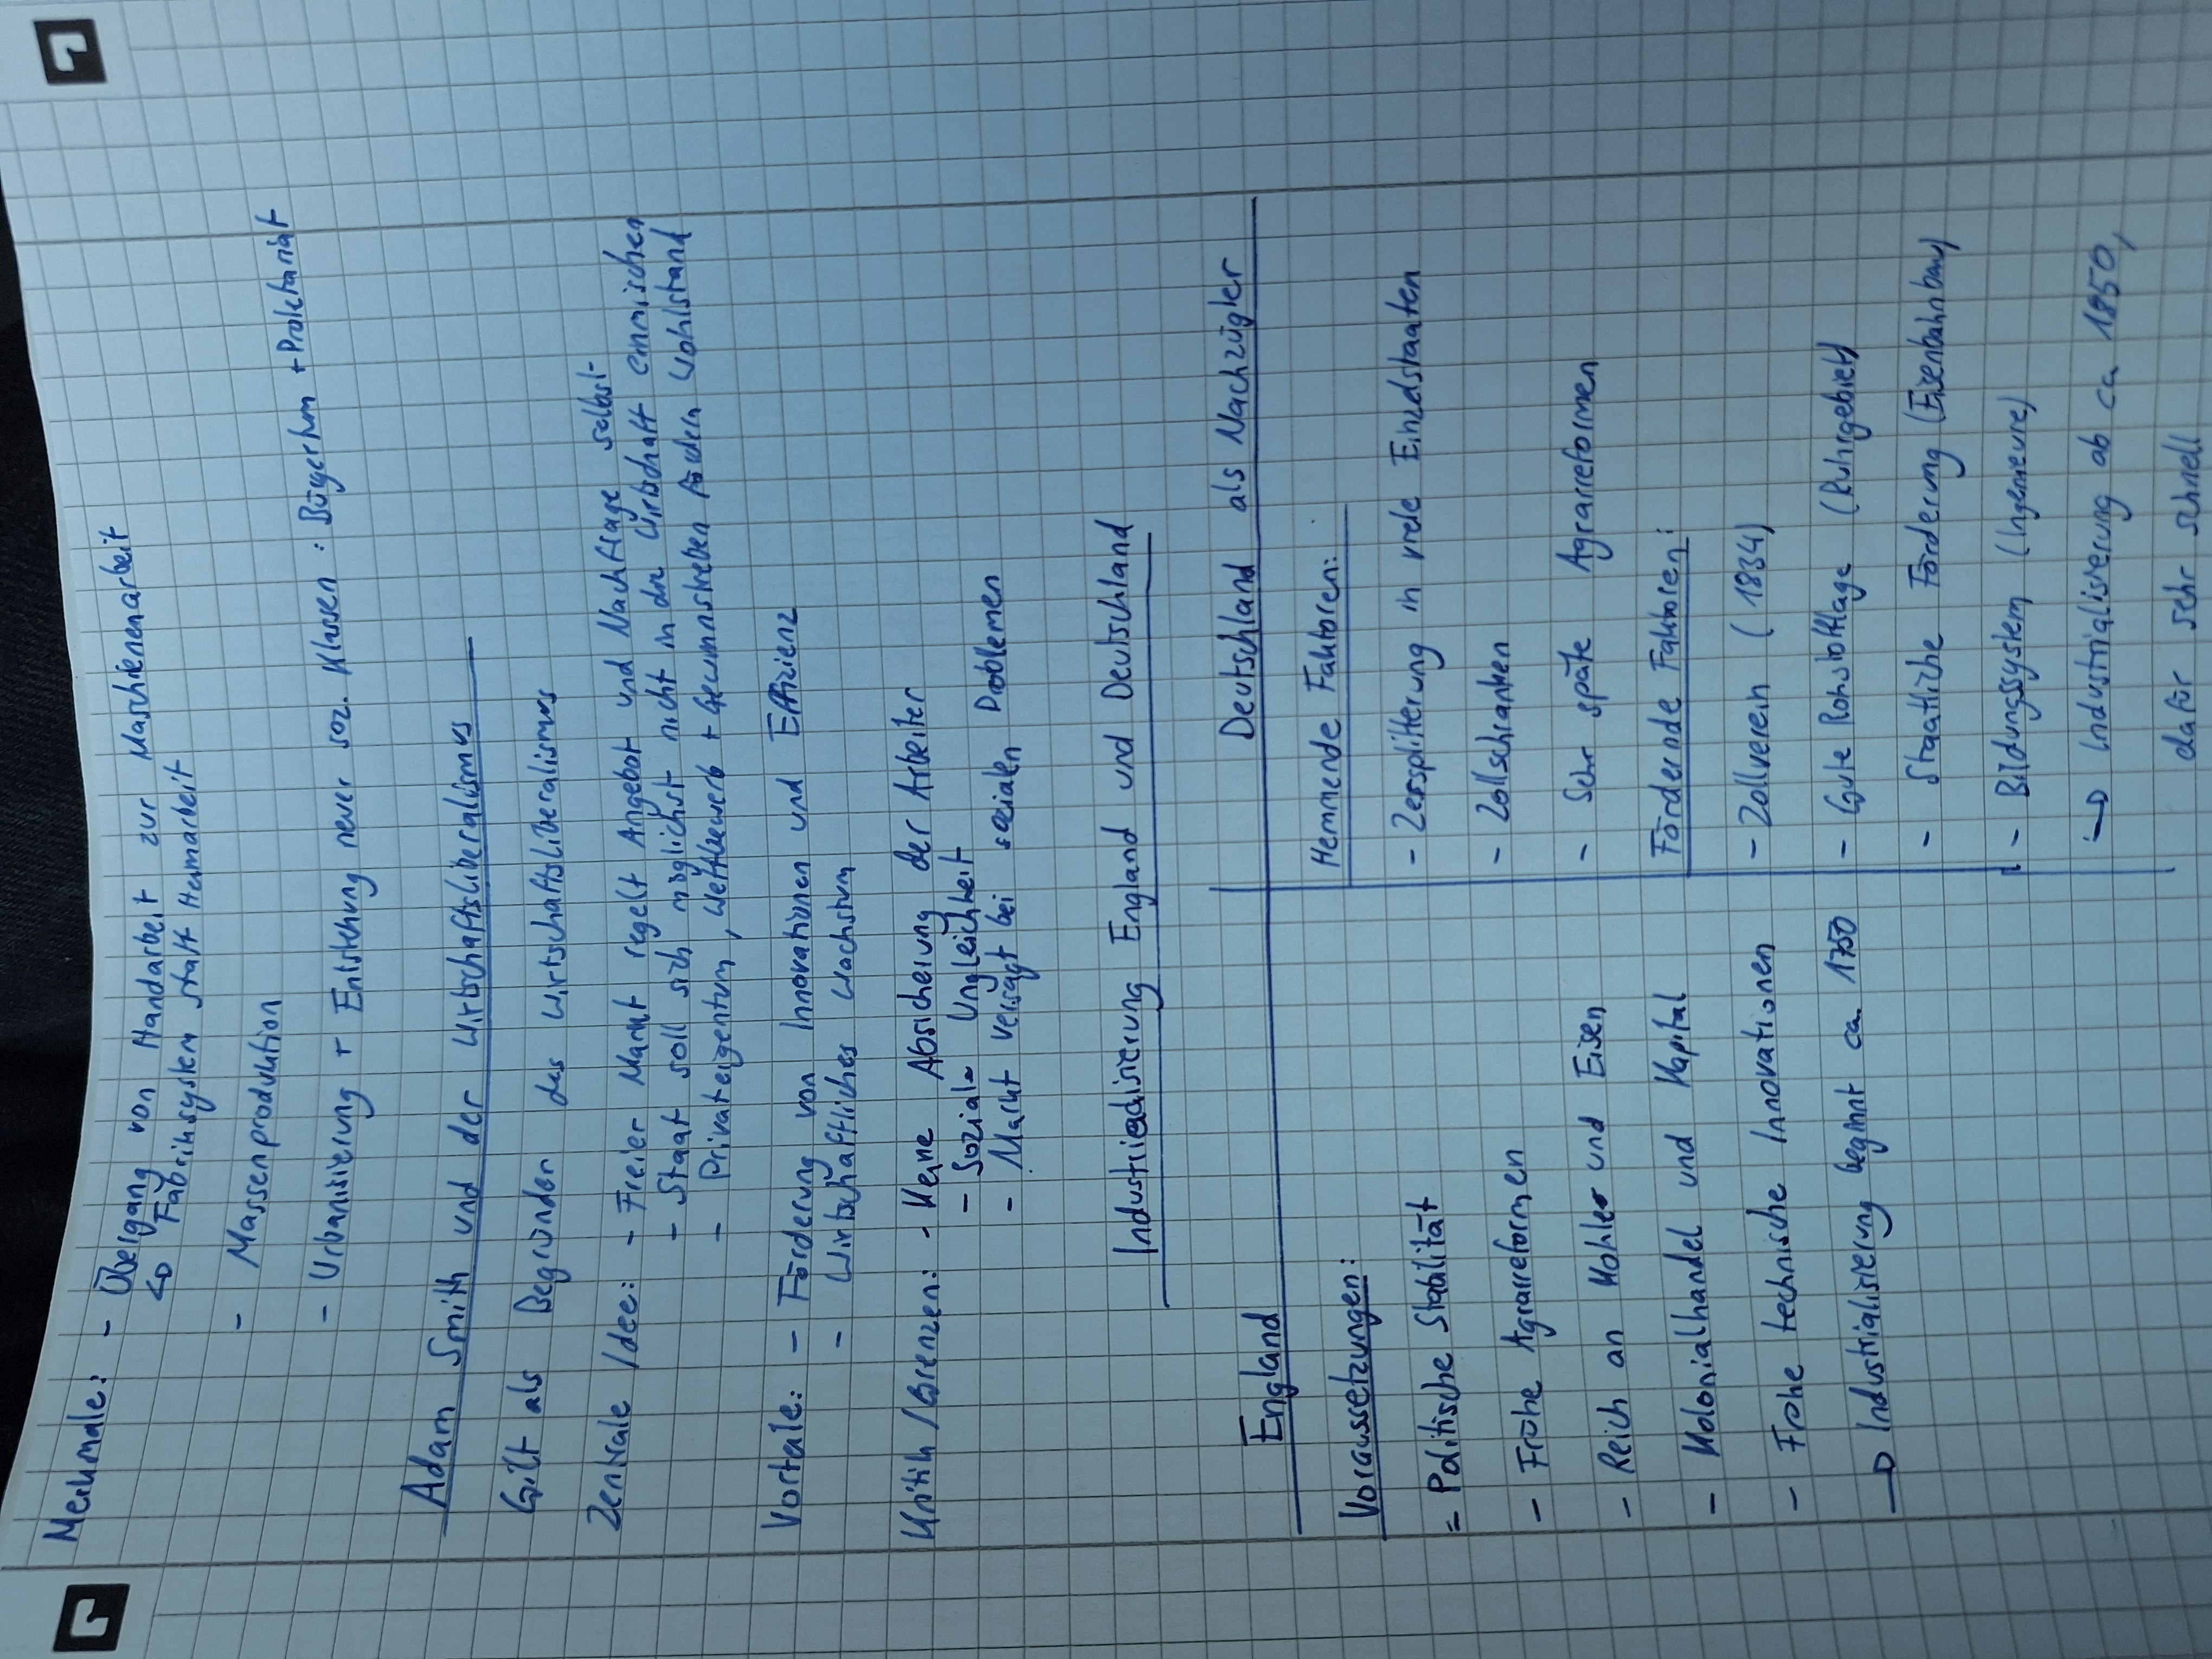 Merkmale: - Übergang von Handarbeit zur Maschienenarbeit
↳ Fabriksystem statt Heimarbeit
- Massenproduktion
- Urbanisierung + Entstehung neuer soz. Klassen: Bürgertum + Proletariat
Adam Smith und der Wirtschaftsliberalismus
Gilt als Begründer des Wirtschaftsliberalismus
Zentrale Idee: - Freier Markt regelt Angebot und Nachfrage selbst
- Staat soll sich möglichst nicht in die Wirtschaft einmischen
- Privateigentum, Wettbewerb + Gewinnstreben fördern Wohlstand
Vorteile: - Förderung von Innovationen und Effizienz
- Wirtschaftliches Wachstum
Kritik/Grenzen: - Keine Absicherung der Arbeiter
- Soziale Ungleichheit
- Markt versagt bei sozialen Problemen
Industriealisierung England und Deutschland
England
Voraussetzungen:
= Politische Stabilität
- Frühe Agrarreformen
- Reich an Kohle und Eisen
- Kolonialhandel und Kapital
- Frühe technische Innovationen
→ Industrialisierung beginnt ca. 1750
Deutschland als Nachzügler
Hemmende Faktoren:
- Zersplitterung in viele Einzelstaaten
- Zollschranken
- Sehr späte Agrarreformen
Fördernde Faktoren:
- Zollverein (1834)
- Gute Rohstofflage (Ruhrgebiet)
- Staatliche Förderung (Eisenbahnbau)
- Bildungssystem (Ingeneure)
→ Industrialisierung ab ca 1850,
dafür sehr schnell